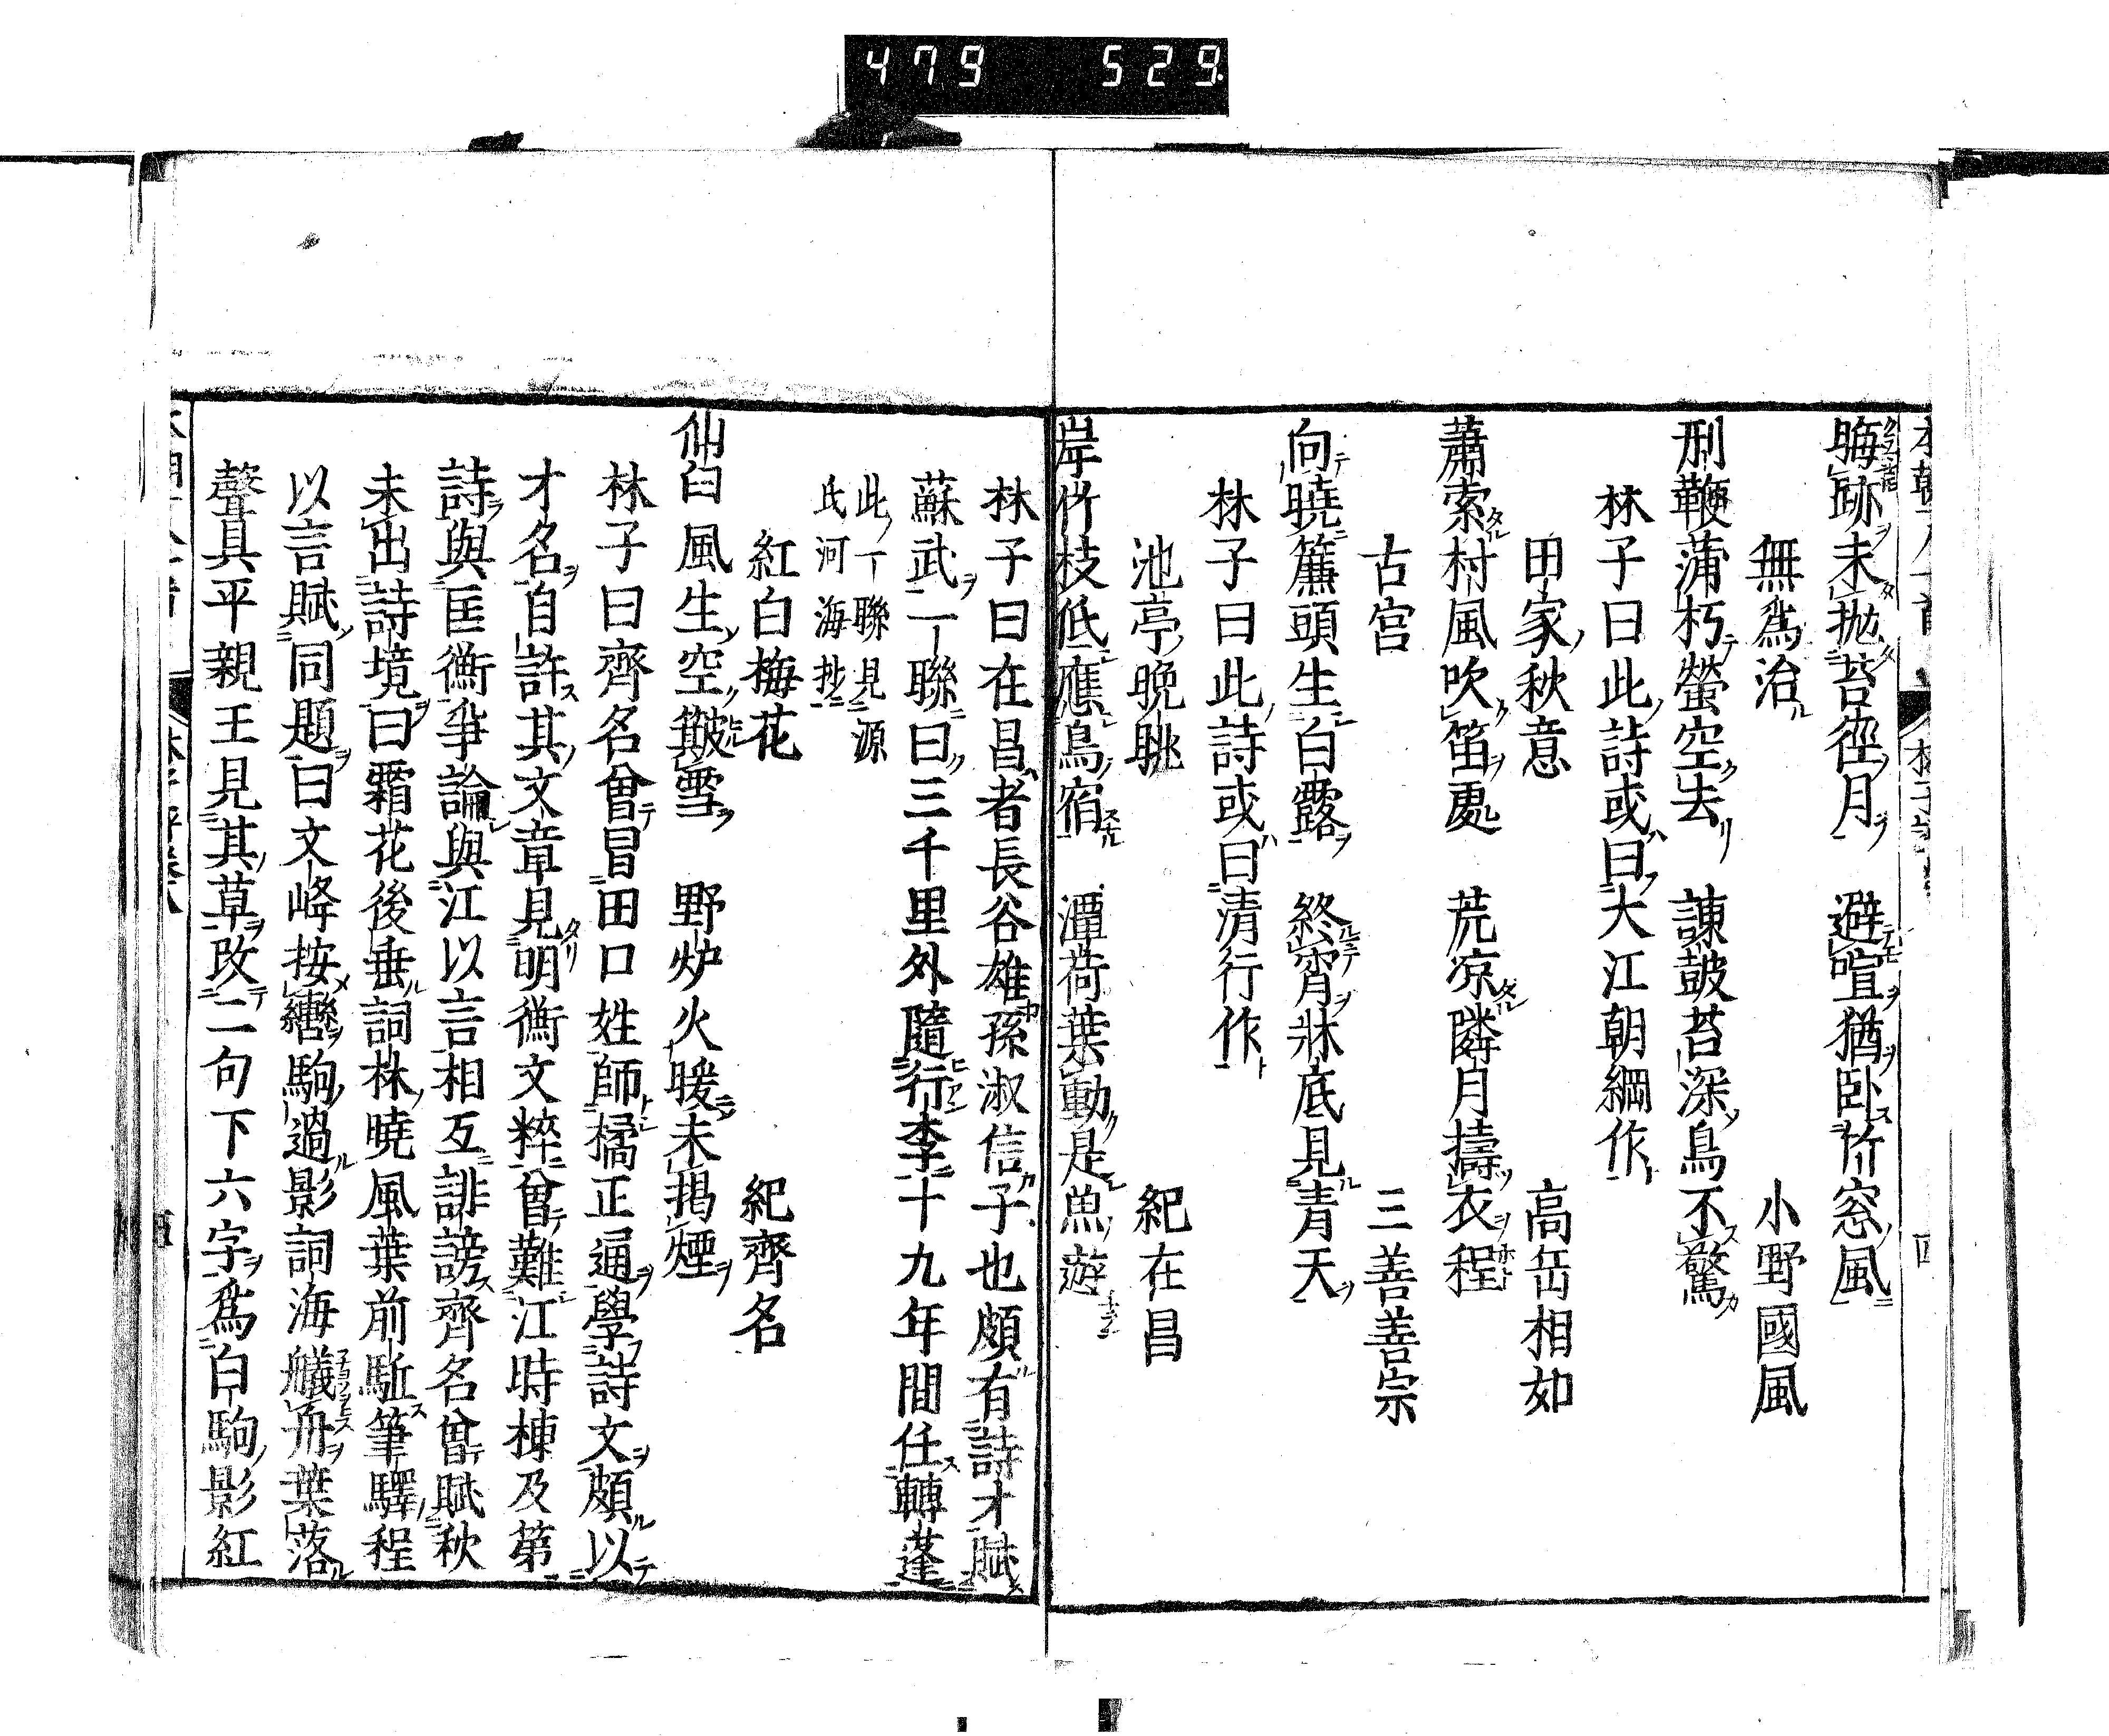 479 529
晦跡未抛苔徑月 避喧猶卧竹窓風
無爲治 小野國風
刑鞭蒲朽螢空去 諫鼓苔深鳥不驚
林子曰此詩或曰大江朝綱作
田家秋意 高岳相如
蕭索村風吹笛處 荒凉隣月擣衣程
古宮 三善善宗
向曉簾頭生白露 終宵牀底見青天
林子曰此詩或曰清行作
池亭晩眺 紀在昌
岸竹枝低應鳥宿 潭荷葉動是魚遊
林子曰在昌者長谷雄孫淑信子也頗有詩才賦
蘇武一聯曰三千里外隨行李十九年間任轉蓬
此一聯見源
氏河海抄
紅白梅花 紀齊名
仙臼風生空簸雪 野炉火暖未揚煙
林子曰齊名曾冒田口姓師橘正通學詩文頗以
才名自許其文章見明衡文粹曾難江時棟及第
詩與匡衡爭論與江以言相互誹謗齊名曾賦秋
未出詩境曰霜花後垂詞林曉風葉前駈筆驛程
以言賦同題曰文峰按轡駒過影詞海艤舟葉落
聲具平親王見其草改二句下六字爲白駒影紅